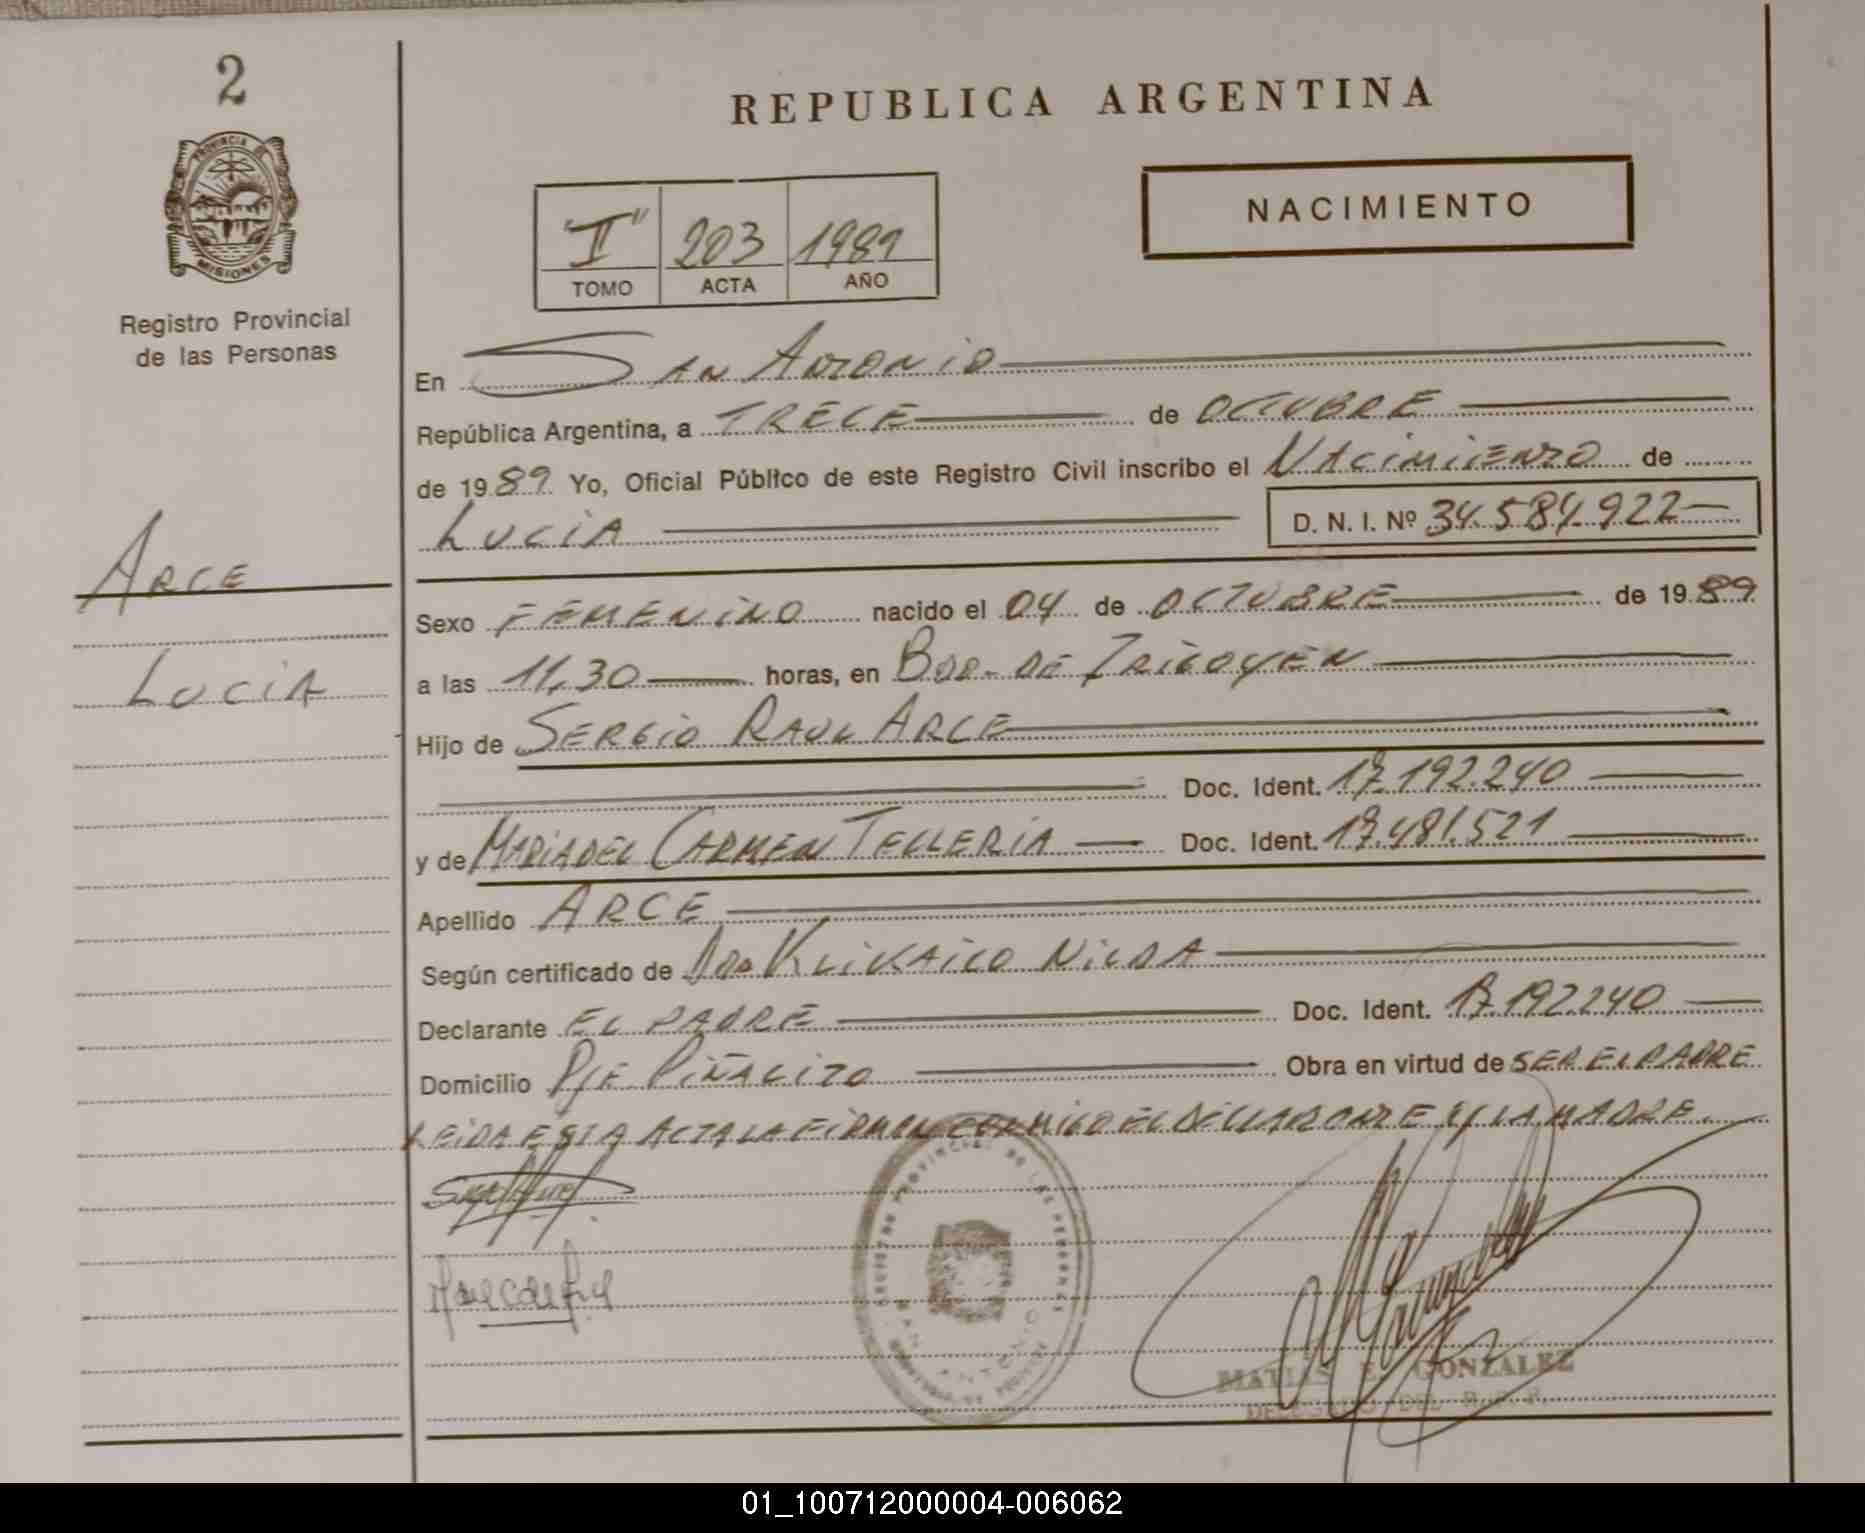 2
REPUBLICA ARGENTINA
PROVINCIA DE
MISIONES
Registro Provincial
de las Personas
"I" 203 1989
TOMO ACTA AÑO
NACIMIENTO
En SAN ANTONIO
República Argentina, a TRECE de OCTUBRE
de 1989 Yo, Oficial Público de este Registro Civil inscribo el NACIMIENTO de
LUCIA D. N. I. Nº 34.584.922
ARCE
LUCIA
Sexo FEMENINO nacido el 04 de OCTUBRE de 1989
a las 11,30 horas, en BDO. DE IRIGOYEN
Hijo de SERGIO RAUL ARCE
Doc. Ident. 17.192.240
y de MARIA DEL CARMEN TELLERIA Doc. Ident. 17.481.521
Apellido ARCE
Según certificado de DRA KLIKAILO NILDA
Declarante EL PADRE Doc. Ident. 17.192.240
Domicilio PJE PIÑALITO Obra en virtud de SER EL PADRE
LEIDA ESTA ACTA LA FIRMAN CONMIGO EL DECLARANTE Y LA MADRE
REGISTRO PROVINCIAL DE LAS PERSONAS
SAN ANTONIO
MATIAS E. GONZALEZ
DELEGADO DEL R. P. P.
01_100712000004-006062